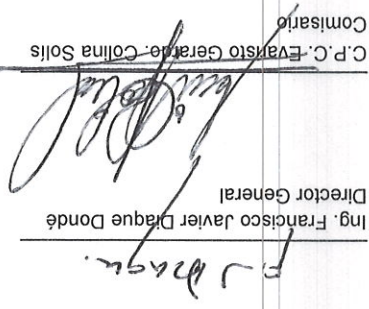 Ing. Francisco Javier Diaque Dondé
Director General
C.P.C. Evaristo Gerardo Colina Solís
Comisario